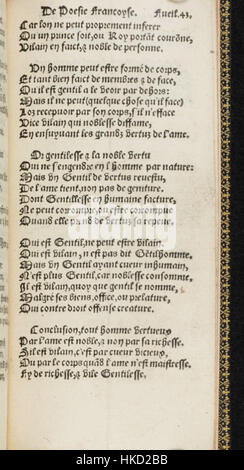 De Poesie Francoyse. Fueil.43.
Car lon ne peut proprement inferer
Ou un prince soit, ou Roy portāt courōne,
Vilain en faict, ⁊ noble de personne.
Un homme peut estre formé de corps,
Et tant bien faict de membres ⁊ de face,
Ou il est gentil a le veoir par dehors:
Mais il ne peut (quelque chose qu'il face)
Lors recouvrir par son corps, s'il n'efface
Vice vilain qui noblesse diffame,
En ensuyvant les grandz vertuz de l'ame.
Di gentilesse ⁊ la noble vertu
Qui ne s'engendre en l'homme par nature:
Mais un Gentil de vertus revestu,
De l'ame tient, non pas de geniture.
Dont Gentillesse en humaine facture,
Ne peut corrompre, ou estre corrompue
Quand elle prend de vertu sa repeue.
Qui est Gentil, ne peut estre vilain.
Qui est vilain, n'est pas dit Gētilhōme.
Mais un Gentil ayant cueur inhumain,
N'est plus Gentil, car noblesse consomme,
Il est vilain, quoy que gentil se nomme,
Malgré ses biens, office, ou prelature,
Qui contre droit offense creature.
Conclusion, tout homme vertueux
Par l'ame est noble, ⁊ non par sa richesse.
S'il est vilain, c'est par cueur vicieux,
Ou par le corps quād l'ame n'est maistresse.
Fy de richesse, ⁊ vile Gentilesse.
alamy
Image ID: HKD2BB
www.alamy.com